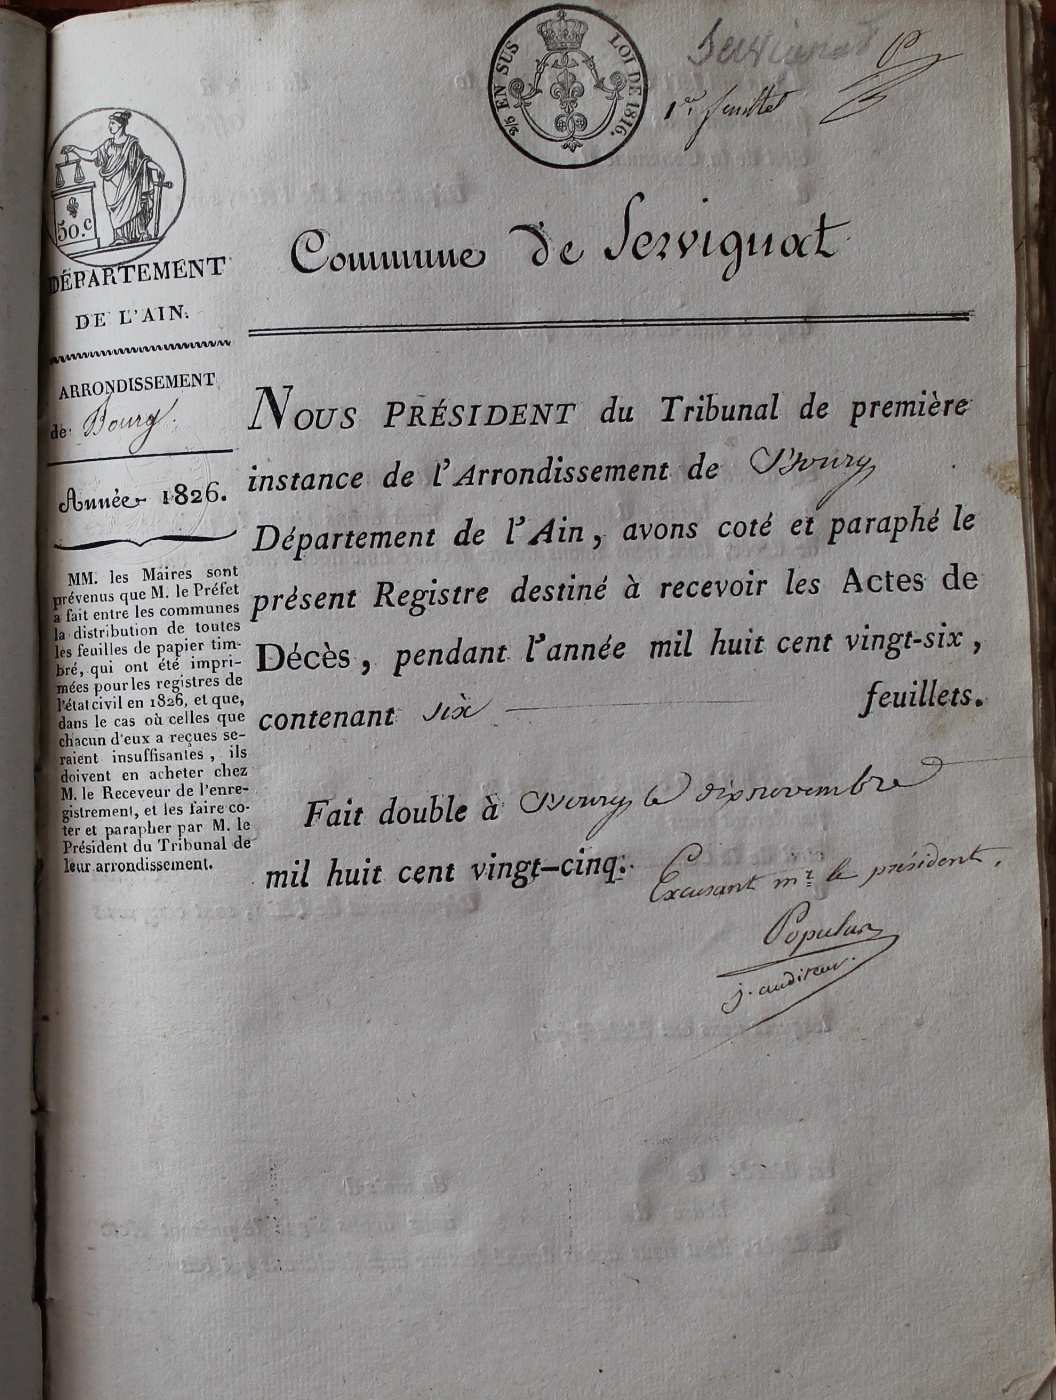 2/5 EN SUS LOI DE 1816.
Servignat
1er feuillet
50.c
DÉPARTEMENT
DE L'AIN.
Commune de Servignat
ARRONDISSEMENT
de Bourg.
Année 1826.
MM. les Maires sont
prévenus que M. le Préfet
a fait entre les communes
la distribution de toutes
les feuilles de papier tim-
bré, qui ont été impri-
mées pour les registres de
l'état civil en 1826, et que,
dans le cas où celles que
chacun d'eux a reçues se-
raient insuffisantes, ils
doivent en acheter chez
M. le Receveur de l'enre-
gistrement, et les faire co-
ter et parapher par M. le
Président du Tribunal de
leur arrondissement.
NOUS PRÉSIDENT du Tribunal de première
instance de l'Arrondissement de Bourg
Département de l'Ain, avons coté et paraphé le
présent Registre destiné à recevoir les Actes de
Décès, pendant l'année mil huit cent vingt-six,
contenant six feuillets.
Fait double à Bourg le dix novembre
mil huit cent vingt-cinq.
Excusant mr le président.
Populus
j. auditeur.